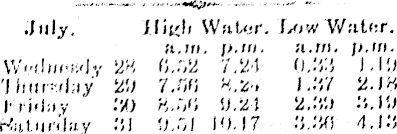 July. High Water. Low Water.
a.m. p.m. a.m. p.m.
Wednesday 28 6.52 7.24 0.33 1.19
Thursday 29 7.56 1.37 2.18
Friday 30 8.56 9.24 2.39 3.19
Saturday 31 9.51 10.17 3.36 4.13